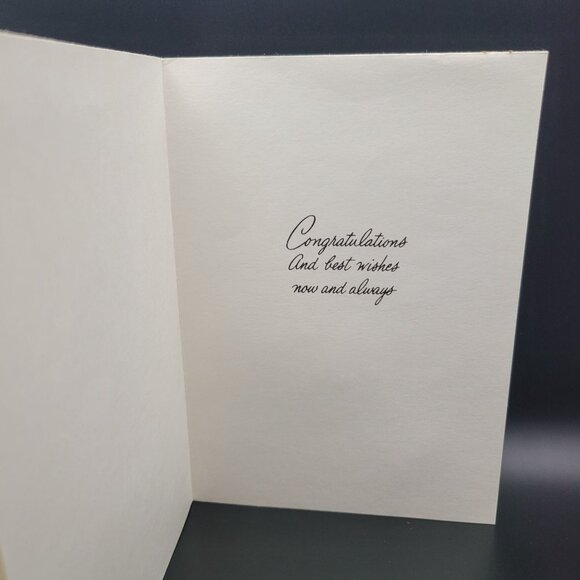 Congratulations
And best wishes
now and always